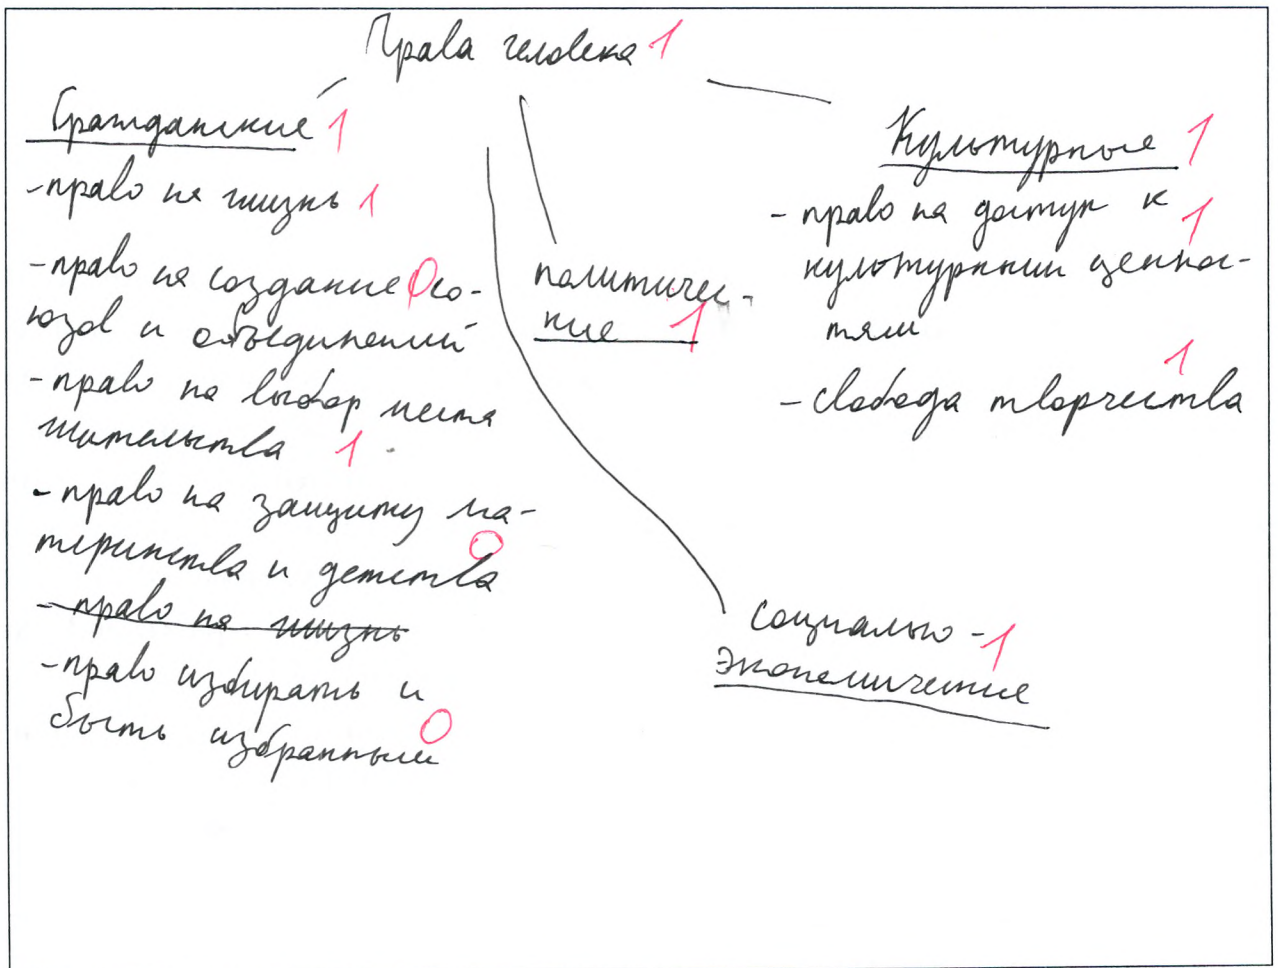 Права человека 1
Гражданские 1
- право на жизнь 1
- право на создание 0 со-
юзов и объединений
- право на выбор места
жительства 1
- право на защиту ма-
теринства и детства 0
- право на жизнь
- право избирать и
быть избранным 0
политичес-
кие 1
социально - 1
экономические
Культурные 1
- право на доступ к 1
культурным ценнос-
тям
1
- свобода творчества